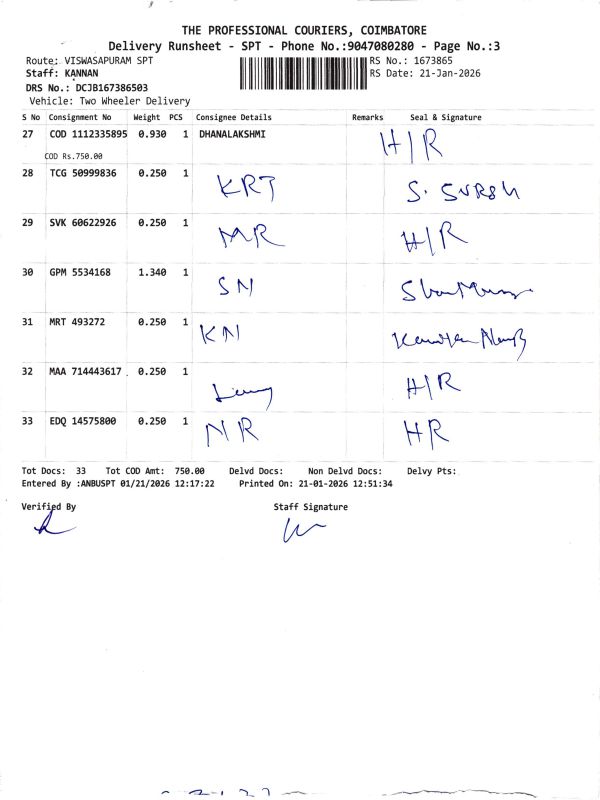 THE PROFESSIONAL COURIERS, COIMBATORE
Delivery Runsheet - SPT - Phone No.:9047080280 - Page No.:3
Route: VISWASAPURAM SPT
RS No.: 1673865
Staff: KANNAN
RS Date: 21-Jan-2026
DRS No.: DCJB167386503
Vehicle: Two Wheeler Delivery
S No Consignment No Weight PCS Consignee Details Remarks Seal & Signature
27 COD 1112335895 0.930 1 DHANALAKSHMI H/R
COD Rs.750.00
28 TCG 50999836 0.250 1 KRT S. SURSH
29 SVK 60622926 0.250 1 MR H/R
30 GPM 5534168 1.340 1 SN
31 MRT 493272 0.250 1 KN
32 MAA 714443617 0.250 1 H/R
33 EDQ 14575800 0.250 1 NR HR
Tot Docs: 33 Tot COD Amt: 750.00 Delvd Docs: Non Delvd Docs: Delvy Pts:
Entered By :ANBUSPT 01/21/2026 12:17:22 Printed On: 21-01-2026 12:51:34
Verified By Staff Signature